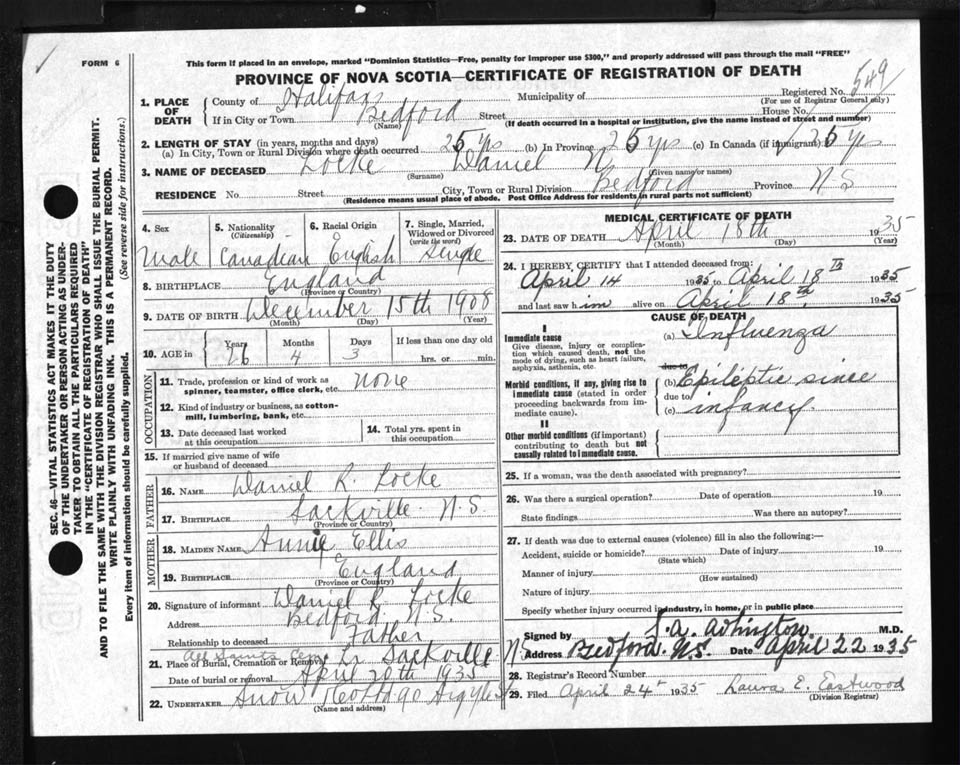 FORM 6
This form if placed in an envelope, marked "Dominion Statistics—Free, penalty for improper use $300," and properly addressed will pass through the mail "FREE"
PROVINCE OF NOVA SCOTIA—CERTIFICATE OF REGISTRATION OF DEATH
Registered No. 549
(For use of Registrar General only)
1. PLACE OF DEATH
County of Halifax Municipality of
If in City or Town Bedford Street House No.
(Name) (If death occurred in a hospital or institution, give the name instead of street and number)
2. LENGTH OF STAY (in years, months and days)
(a) In City, Town or Rural Division where death occurred 25 yrs (b) In Province 25 yrs (c) In Canada (if immigrant) 25 yr
3. NAME OF DECEASED Locke Daniel N.
(Surname) (Given name or names)
RESIDENCE No. Street City, Town or Rural Division Bedford Province N S
(Residence means usual place of abode. Post Office Address for residents in rural parts not sufficient)
4. Sex
Male
5. Nationality
(Citizenship)
Canadian
6. Racial Origin
English
7. Single, Married, Widowed or Divorced
(write the word)
Single
8. BIRTHPLACE England
(Province or Country)
9. DATE OF BIRTH December 15th 1908
(Month) (Day) (Year)
10. AGE in
Years Months Days If less than one day old
26 4 3 hrs. or min.
OCCUPATION
11. Trade, profession or kind of work as spinner, teamster, office clerk, etc. none
12. Kind of industry or business, as cotton-mill, lumbering, bank, etc.
13. Date deceased last worked at this occupation
14. Total yrs. spent in this occupation
15. If married give name of wife or husband of deceased
FATHER
16. NAME Daniel R. Locke
17. BIRTHPLACE Sackville N.S.
(Province or Country)
MOTHER
18. MAIDEN NAME Annie Ellis
19. BIRTHPLACE England
(Province or Country)
20. Signature of informant Daniel R. Locke
Address Bedford N.S.
Relationship to deceased Father
21. Place of Burial, Cremation or Removal All Saints Cem. Lr Sackville N.S.
Date of burial or removal April 20th 1935
22. UNDERTAKER Snow
(Name and address)
MEDICAL CERTIFICATE OF DEATH
23. DATE OF DEATH April 18th 1935
(Month) (Day) (Year)
24. I HEREBY CERTIFY that I attended deceased from:
April 14 1935 to April 18th 1935
and last saw him alive on April 18th 1935
CAUSE OF DEATH
I
Immediate cause
Give disease, injury or complication which caused death, not the mode of dying, such as heart failure, asphyxia, asthenia, etc.
(a) Influenza
due to
Morbid conditions, if any, giving rise to immediate cause (stated in order proceeding backwards from immediate cause).
(b) Epileptic since
due to
(c) infancy.
II
Other morbid conditions (if important) contributing to death but not causally related to immediate cause.
25. If a woman, was the death associated with pregnancy?
26. Was there a surgical operation? Date of operation 19
State findings Was there an autopsy?
27. If death was due to external causes (violence) fill in also the following:—
Accident, suicide or homicide? Date of injury 19
(State which)
Manner of injury
(How sustained)
Nature of injury
Specify whether injury occurred in industry, in home, or in public place
Signed by M.D.
Address Bedford. N.S. Date April 22 1935
28. Registrar's Record Number
29. Filed April 24th 1935 Laura E. Eastwood
(Division Registrar)
SEC. 46—VITAL STATISTICS ACT MAKES IT THE DUTY
OF THE UNDERTAKER OR PERSON ACTING AS UNDER-
TAKER TO OBTAIN ALL THE PARTICULARS REQUIRED
IN THE "CERTIFICATE OF REGISTRATION OF DEATH"
AND TO FILE THE SAME WITH THE DIVISION REGISTRAR WHO SHALL ISSUE THE BURIAL PERMIT.
WRITE PLAINLY WITH UNFADING INK. THIS IS A PERMANENT RECORD.
Every item of information should be carefully supplied. (See reverse side for instructions.)